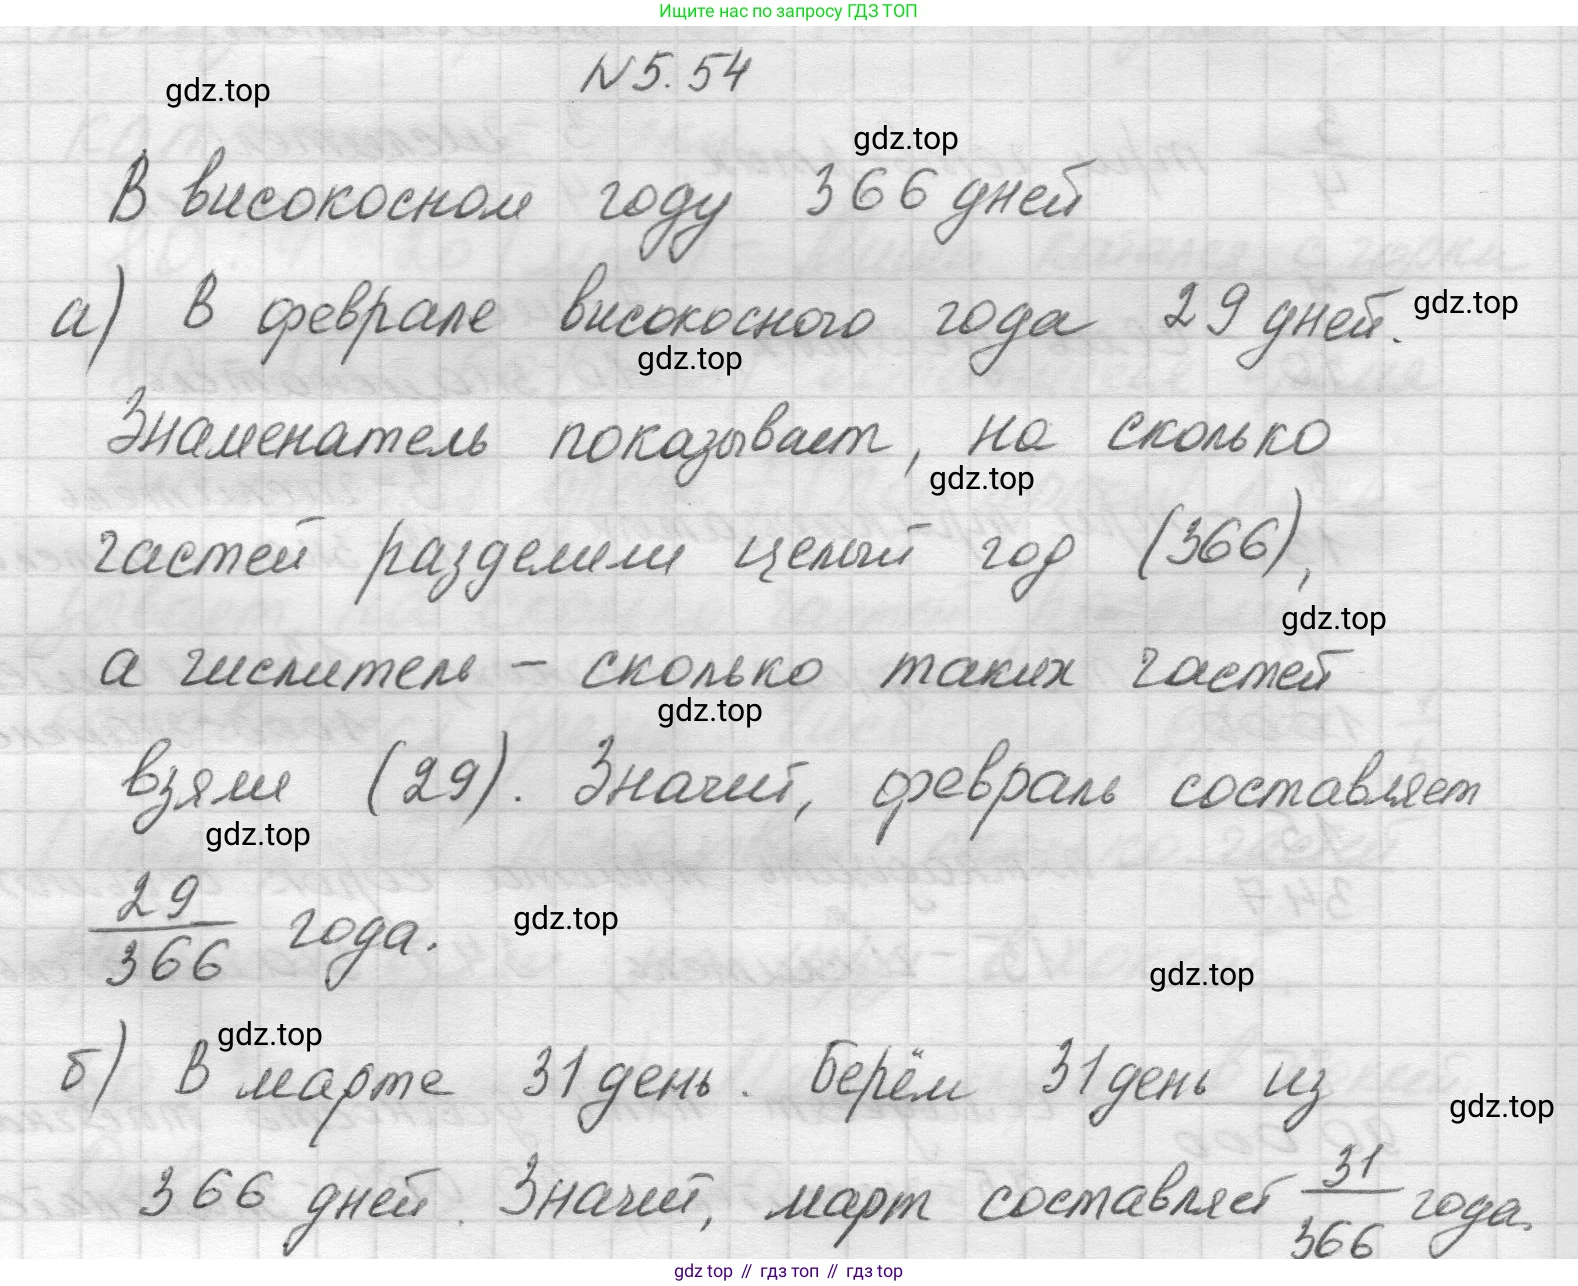 Ищите нас по запросу ГДЗ ТОП
N 5.54
gdz.top
gdz.top
В високосном году 366 дней
а) В феврале високосного года 29 дней.
gdz.top
gdz.top
Знаменатель показывает, на сколько
gdz.top
частей разделили целый год (366),
gdz.top
а числитель – сколько таких частей
gdz.top
взяли (29). Значит, февраль составляет
gdz.top
29/366 года.
gdz.top
gdz.top
gdz.top
б) В марте 31 день. Берём 31 день из
gdz.top
366 дней. Значит, март составляет 31/366 года.
gdz.top // гдз топ // гдз top